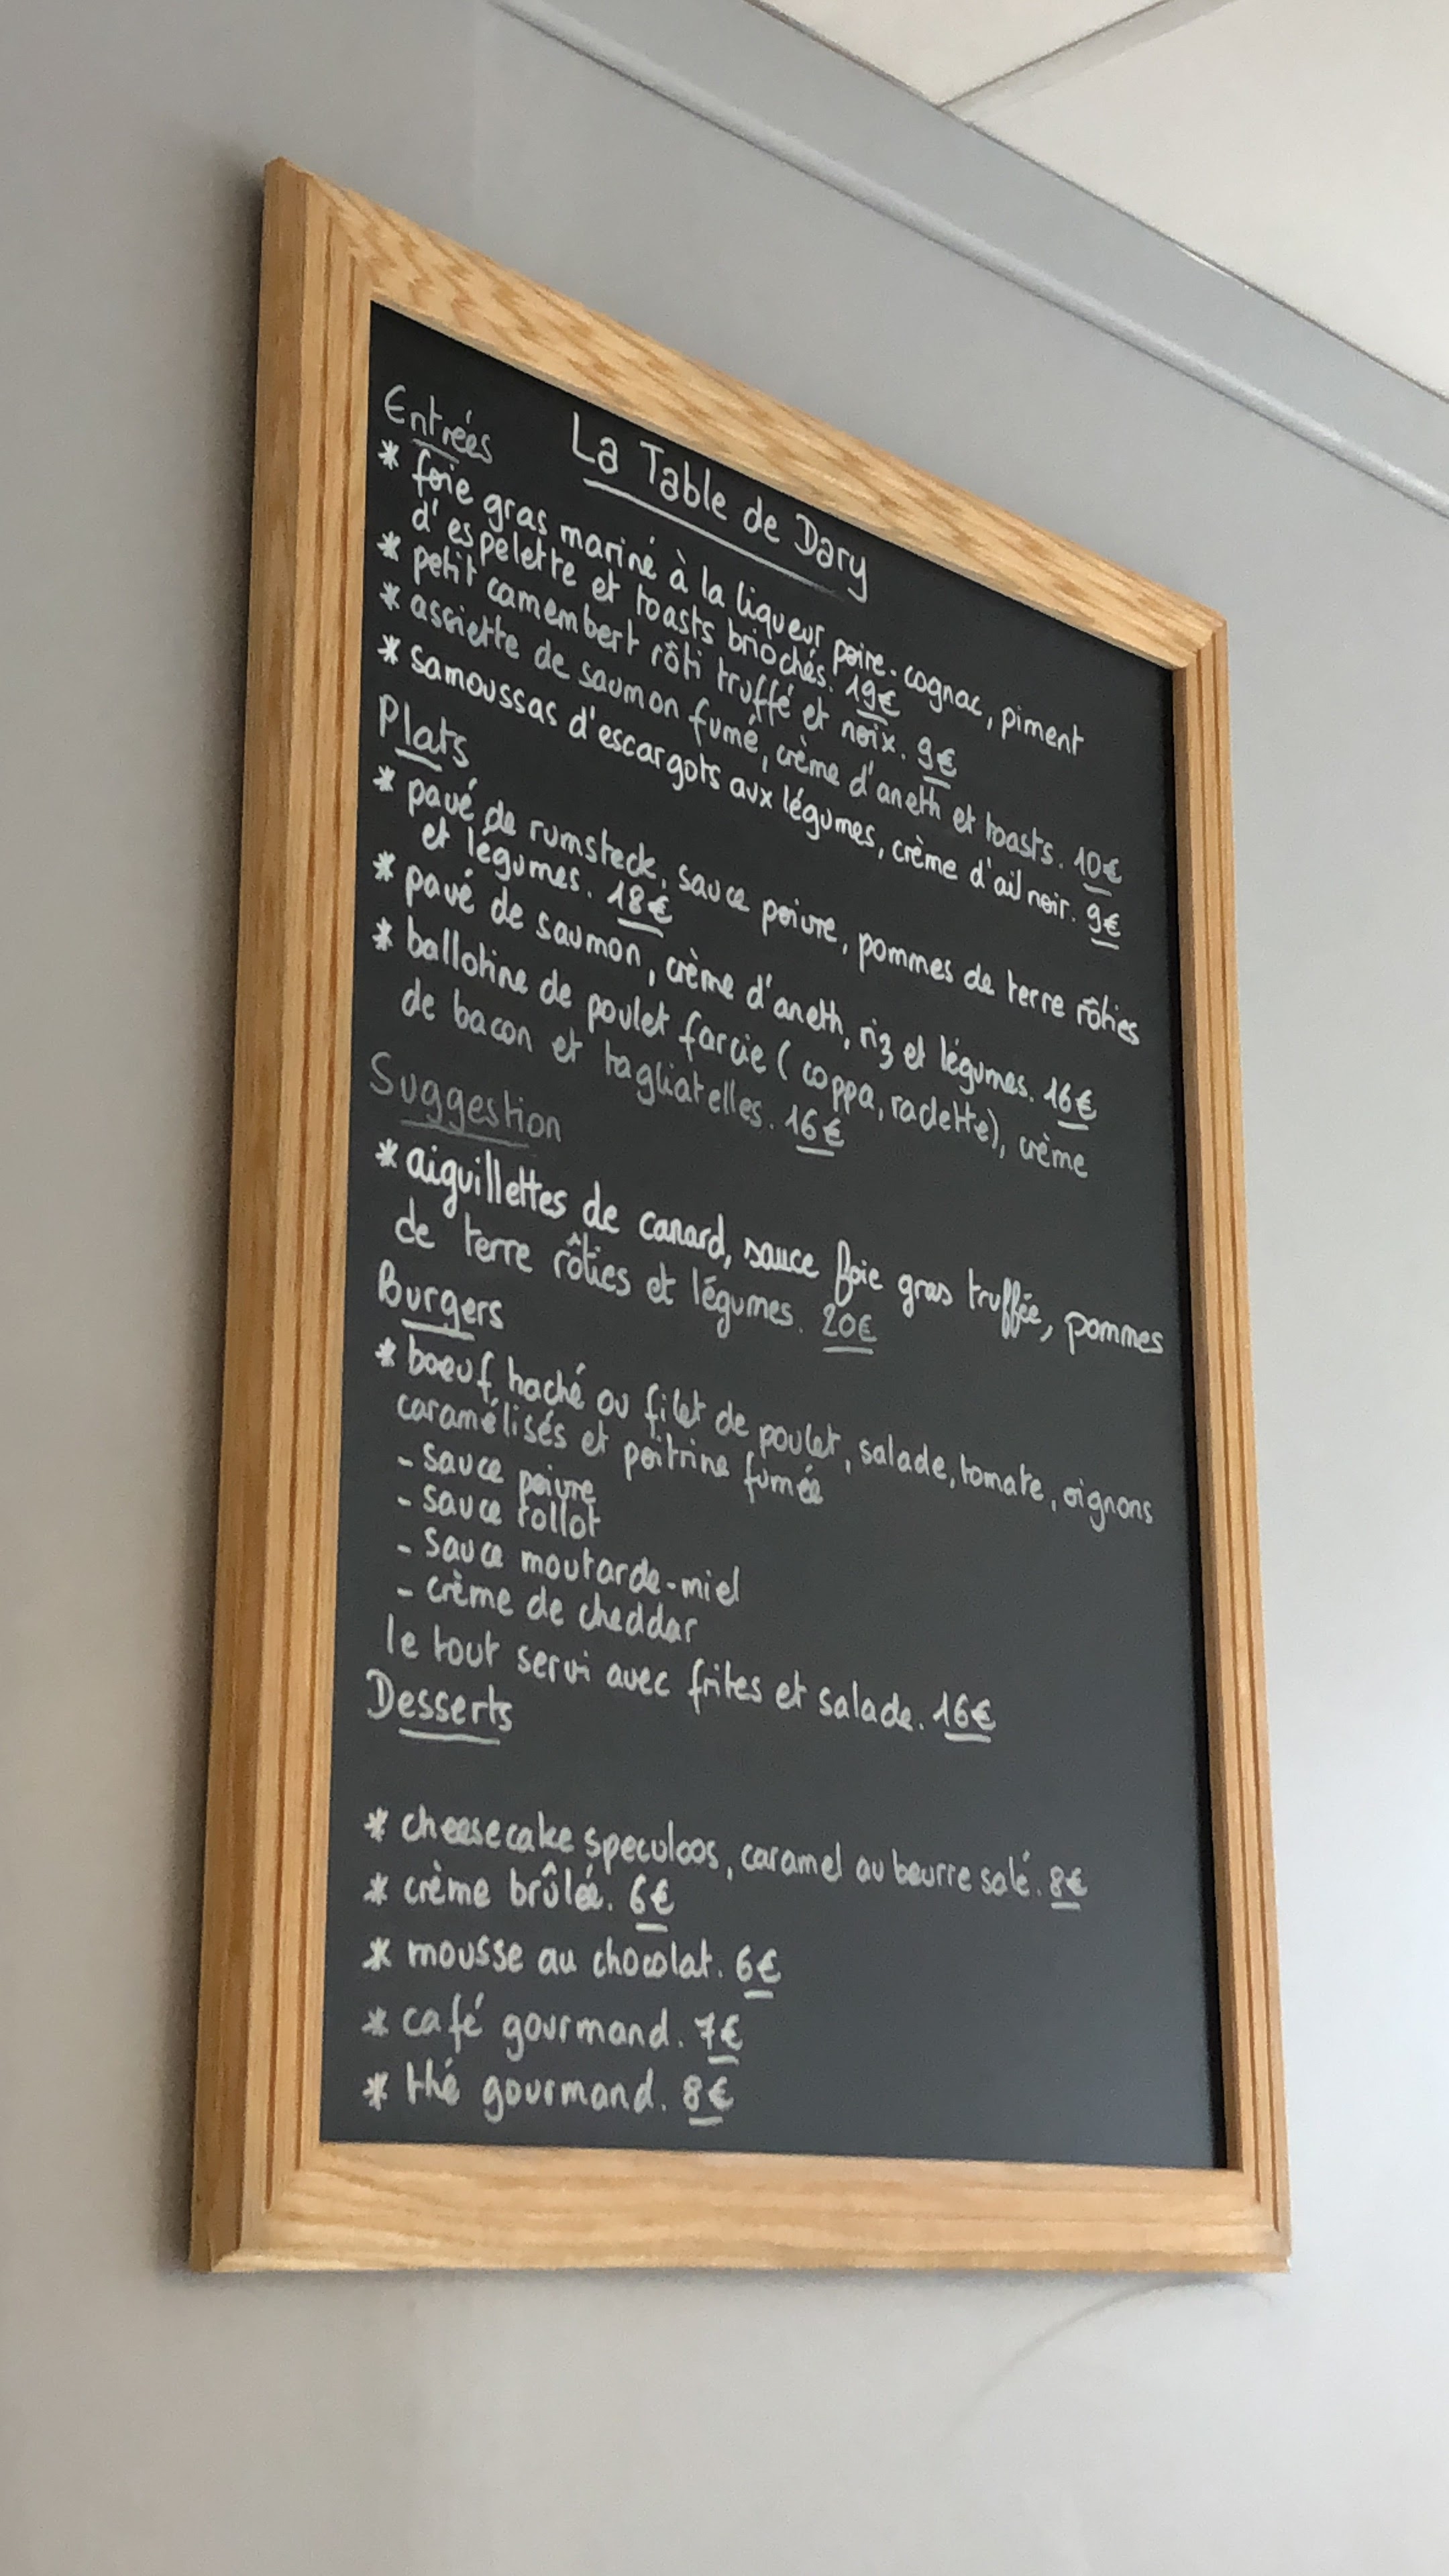 La Table de Dary
Entrées
* foie gras mariné à la liqueur poire-cognac, piment
d'espelette et toasts briochés. 19€
* petit camembert rôti truffé et noix. 9€
* assiette de saumon fumé, crème d'aneth et toasts. 10€
* samoussas d'escargots aux légumes, crème d'ail noir. 9€
Plats
* pavé de rumsteck, sauce poivre, pommes de terre rôties
et légumes. 18€
* pavé de saumon, crème d'aneth, riz et légumes. 16€
* ballotine de poulet farcie (coppa, raclette), crème
de bacon et tagliatelles. 16€
Suggestion
* aiguillettes de canard, sauce foie gras truffée, pommes
de terre rôties et légumes. 20€
Burgers
* boeuf haché ou filet de poulet, salade, tomate, oignons
caramélisés et poitrine fumée
- sauce poivre
- sauce rollot
- sauce moutarde-miel
- crème de cheddar
le tout servi avec frites et salade. 16€
Desserts
* cheesecake speculoos, caramel au beurre salé. 8€
* crème brûlée. 6€
* mousse au chocolat. 6€
* café gourmand. 7€
* thé gourmand. 8€